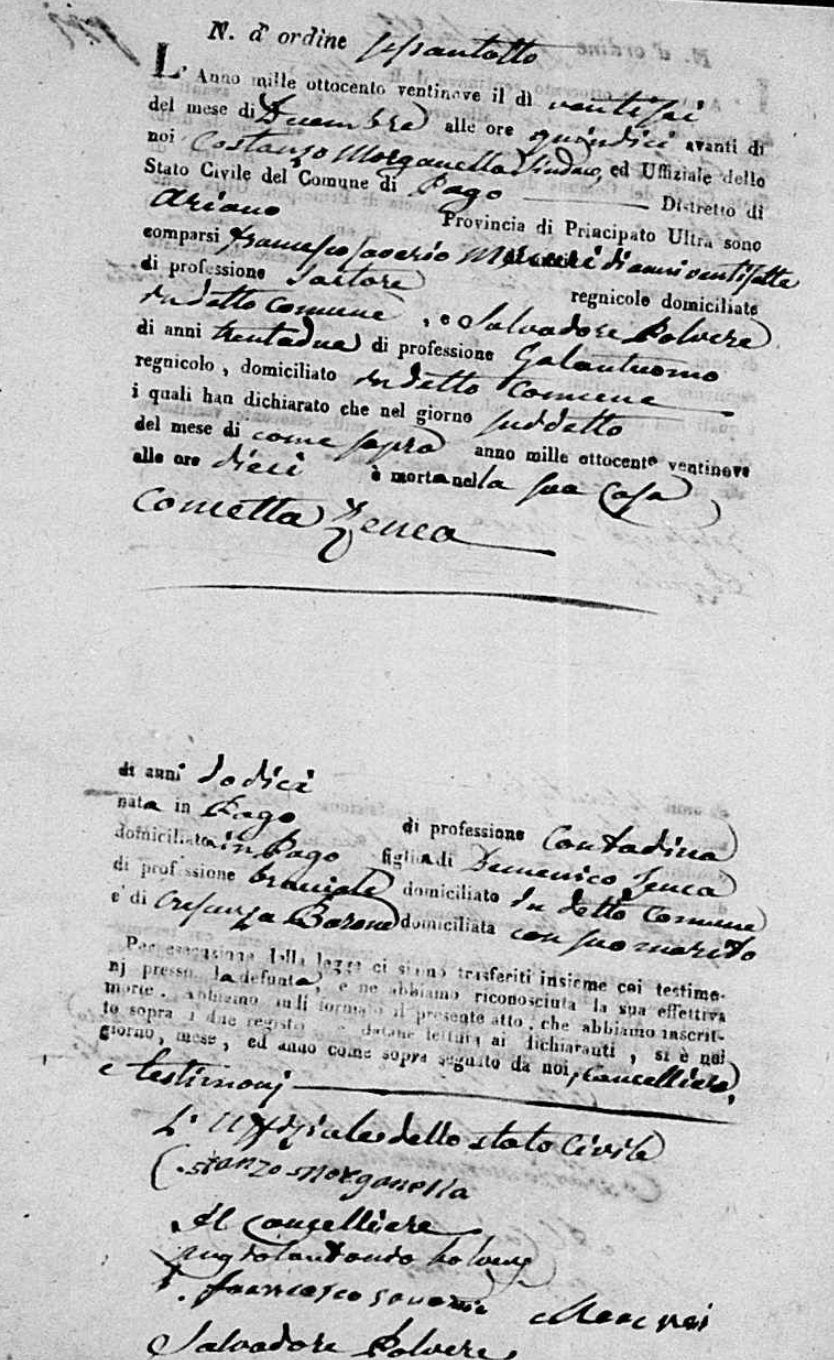 N. d' ordine sessantotto
L' Anno mille ottocento ventinove il dì ventisei
del mese di Dicembre alle ore quindici avanti di
noi Costanzo Morganella Sindaco, ed Uffiziale dello
Stato Civile del Comune di Pago Distretto di
Ariano Provincia di Principato Ultra sono
comparsi Francesco Saverio di anni ventisette
di professione Sartore regnicolo domiciliato
in detto Comune, e Salvadore Polvere
di anni trentadue di professione Galantuomo
regnicolo, domiciliato in detto Comune
i quali han dichiarato che nel giorno suddetto
del mese di come sopra anno mille ottocento ventinove
alle ore dieci è morta nella sua casa
Cometta Zenca
di anni dodici
nata in Pago di professione Contadina
domiciliata in Pago figlia di Domenico Zenca
di professione bracciale domiciliato in detto Comune
e di Crescenza Barone domiciliata con suo marito
Per esecuzione della legge ci siamo trasferiti insieme coi testimo-
nj presso la defunta, e ne abbiamo riconosciuta la sua effettiva
morte. Abbiamo indi formato il presente atto, che abbiamo inscrit-
to sopra i due registri e datane lettura ai dichiaranti, si è nel
giorno, mese, ed anno come sopra segnato da noi, Cancelliere,
e testimonj
L' Uffiziale dello stato Civile
Costanzo Morganella
Il Cancelliere
Polvere
Francesco Saverio
Salvadore Polvere